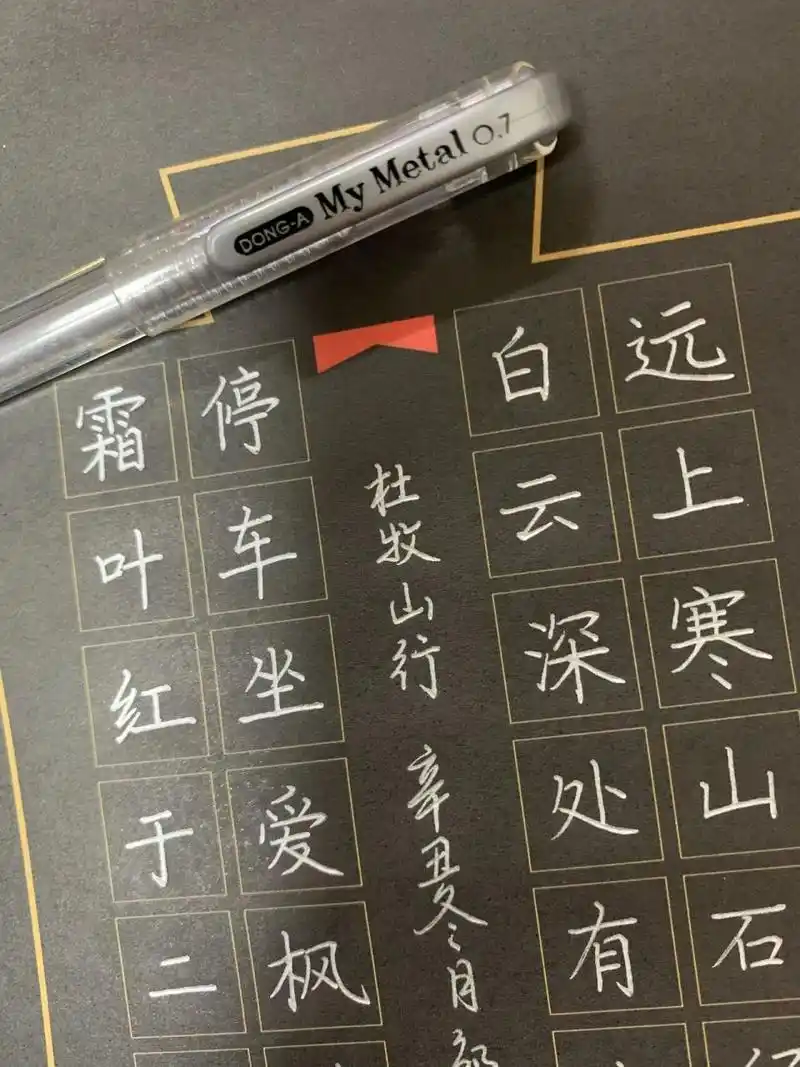 DONG-A My Metal 0.7
远上寒山石
白云深处有
杜牧山行 辛丑冬月
停车坐爱枫
霜叶红于二